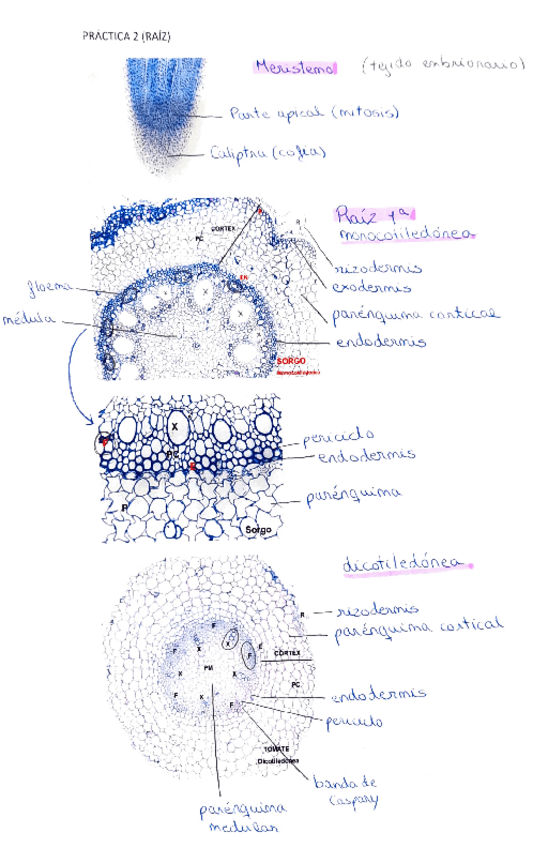 PRÁCTICA 2 (RAÍZ)
Meristemo (tejido embrionario)
Parte apical (mitosis)
Caliptra (cofia)
Raíz 1ª
monocotiledónea
CORTEX
PC
R
EN
X
X
rizodermis
exodermis
parénquima cortical
endodermis
floema
médula
SORGO
Monocotiledónea
X
PC
periciclo
endodermis
parénquima
P
Sorgo
dicotiledónea
R
rizodermis
parénquima cortical
F
X
F
X
X
E
F
CORTEX
PM
X
X
PC
F
X
F
endodermis
periciclo
TOMATE
Dicotiledónea
banda de
Caspary
parénquima
medular